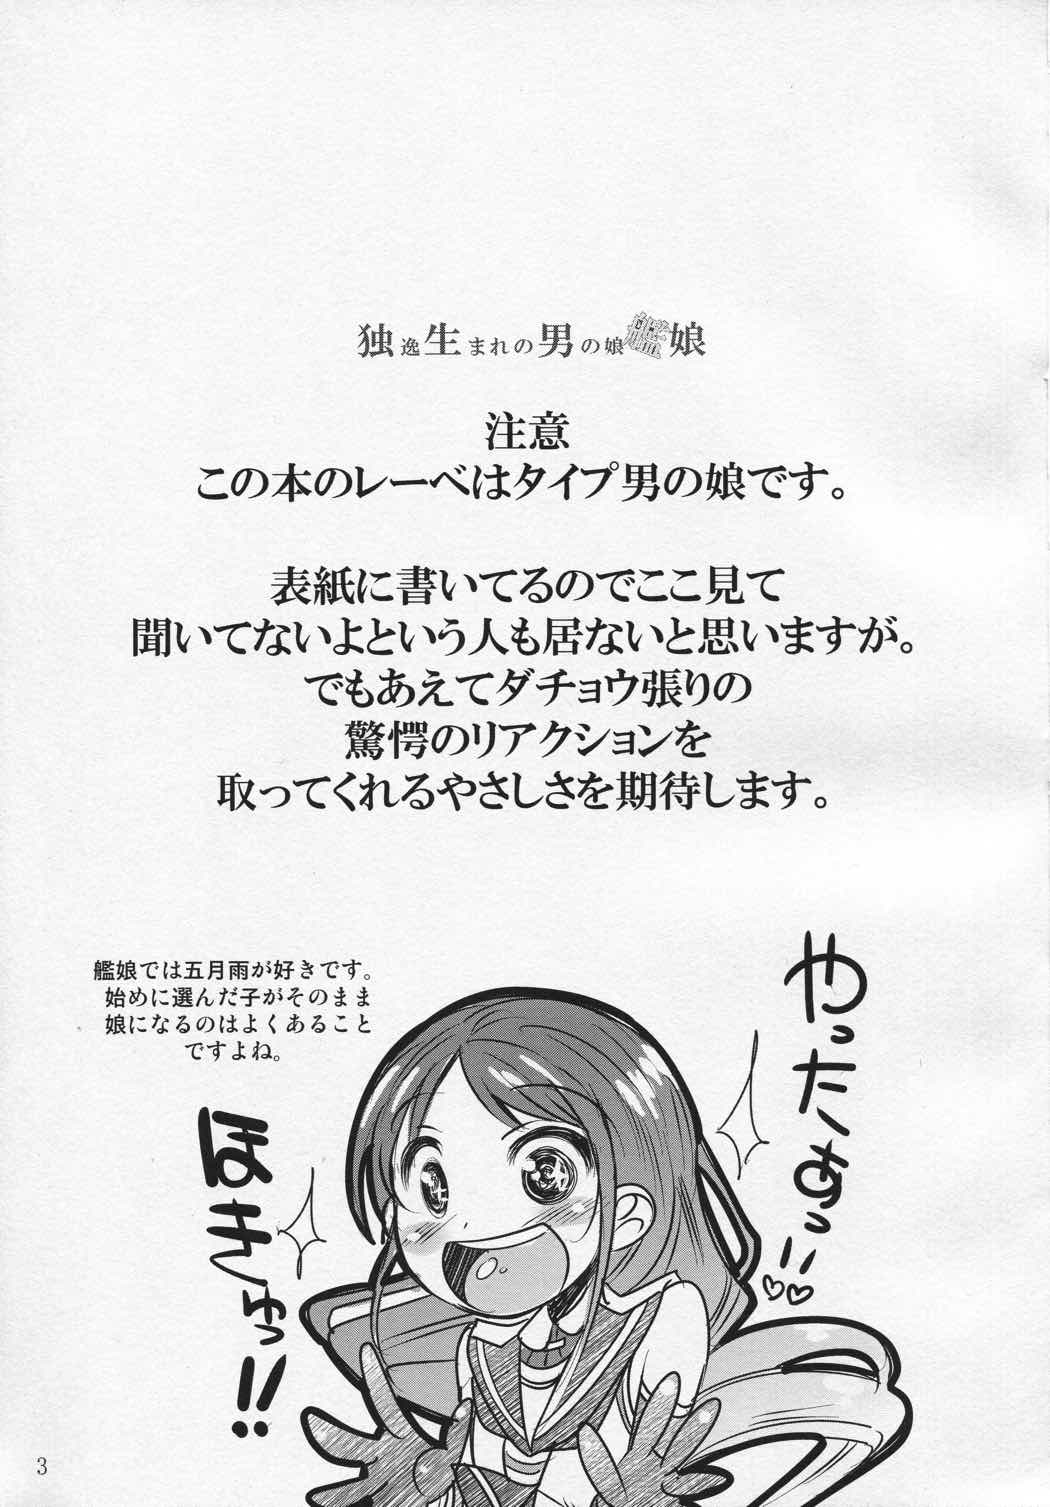 独逸生まれの男の娘艦娘
注意
この本のレーベはタイプ男の娘です。
表紙に書いてるのでここ見て
聞いてないよという人も居ないと思いますが。
でもあえてダチョウ張りの
驚愕のリアクションを
取ってくれるやさしさを期待します。
艦娘では五月雨が好きです。
始めに選んだ子がそのまま
娘になるのはよくあること
ですよね。
やったぁっ!!
ほきゅっ!!
3